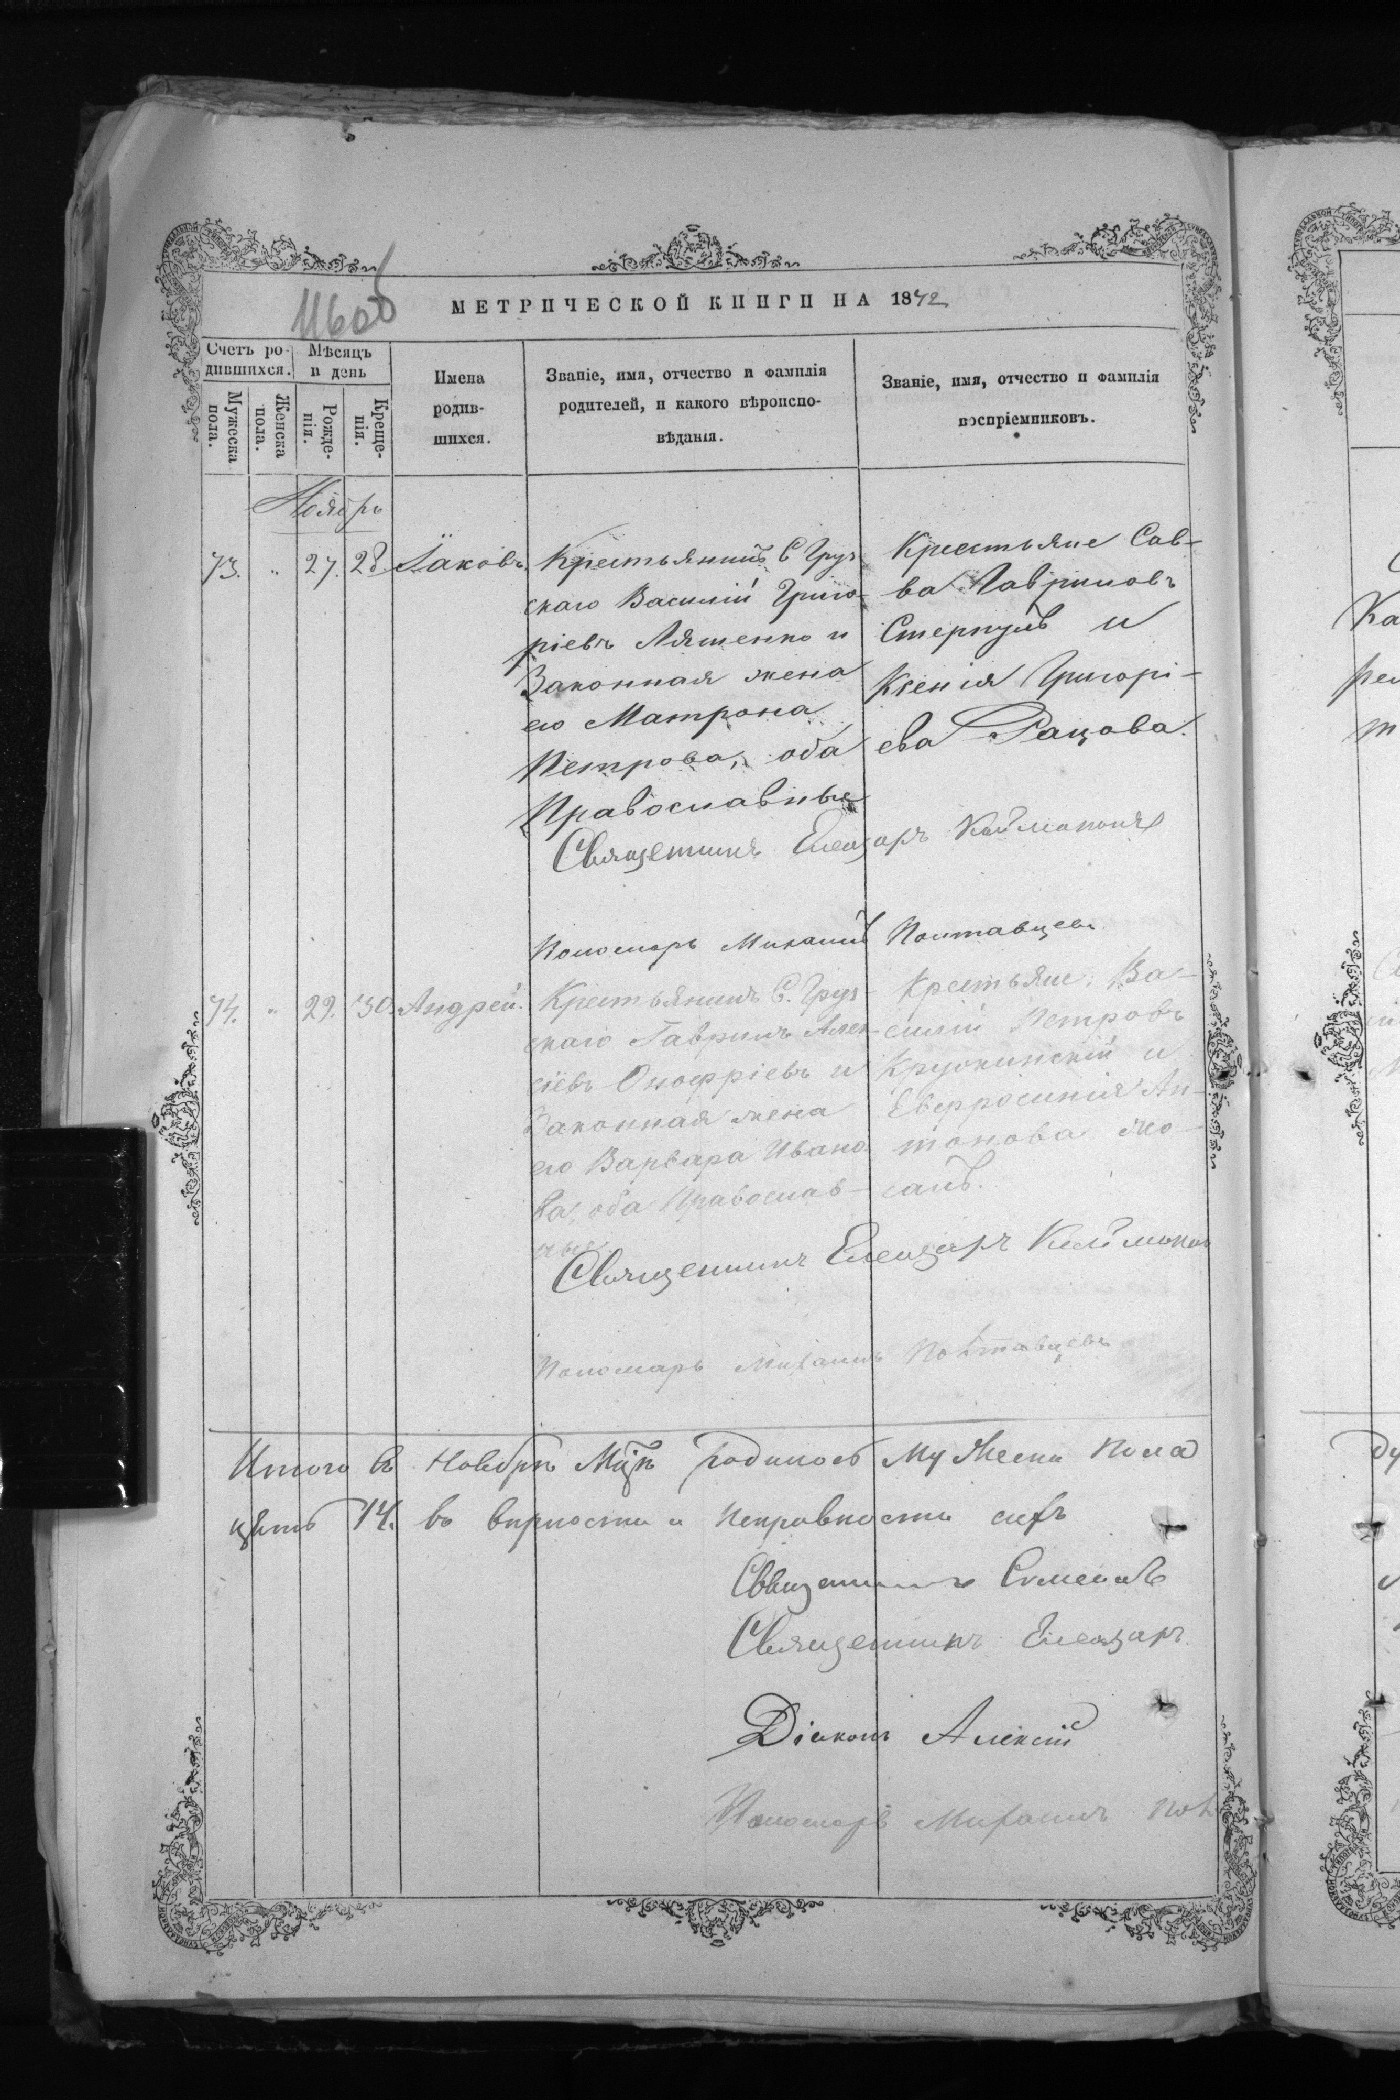 1160б
МЕТРИЧЕСКОЙ КНИГИ НА 1872
Счетъ ро-
дившихся.
Мѣсяцъ
и день
Мужеска
пола.
Женска
пола.
Рожде-
нія.
Креще-
нія.
Имена
родив-
шихся.
Званіе, имя, отчество и фамилія
родителей, и какого вѣроиспо-
вѣданія.
Званіе, имя, отчество и фамилія
воспріемниковъ.
Ноябрь
73. " 27. 28. Іаковъ.
Крестьянинъ С. Груз-
скаго Василій Григо-
ріевъ Ляшенко и
Законная жена
его Матрона
Петрова, оба
Православные
Крестьяне Сав-
ва Гавриловъ
и
Ксенія Григорі-
ева Рацова.
Священникъ Елеазаръ
Пономарь Михаилъ Полтавцевъ
74. " 29. 30. Андрей.
Крестьянинъ С. Груз-
скаго Гавриилъ Алек-
сіевъ Онофріевъ и
Законная жена
его Варвара Ивано-
ва, оба Православ-
ные
Крестьяне: Ва-
силій Петровъ
и
Евфросинія Ан-
тонова
Священникъ Елеазаръ
Пономарь Михаилъ Полтавцевъ
Итого въ Ноябрѣ Мцѣ родилось Мужеска Пола
14. въ вѣрности и исправности сихъ
Священникъ
Священникъ Елеазаръ
Діаконъ Алексій
Пономарь Михаилъ Пол